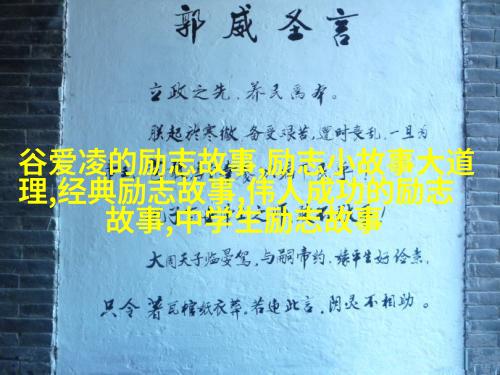 郭威圣言
立政之先，养民为本。
朕起于寒微，备受艰苦，遭时丧乱，一旦为
谷爱凌的励志故事,励志小故事大道
理,经典励志故事,伟人成功的励志
故事,中学生励志故事
大周天子临晏驾，与嗣帝约，缘平生好俭素，
只令著瓦棺纸衣葬。若违此言，阴灵不相助。